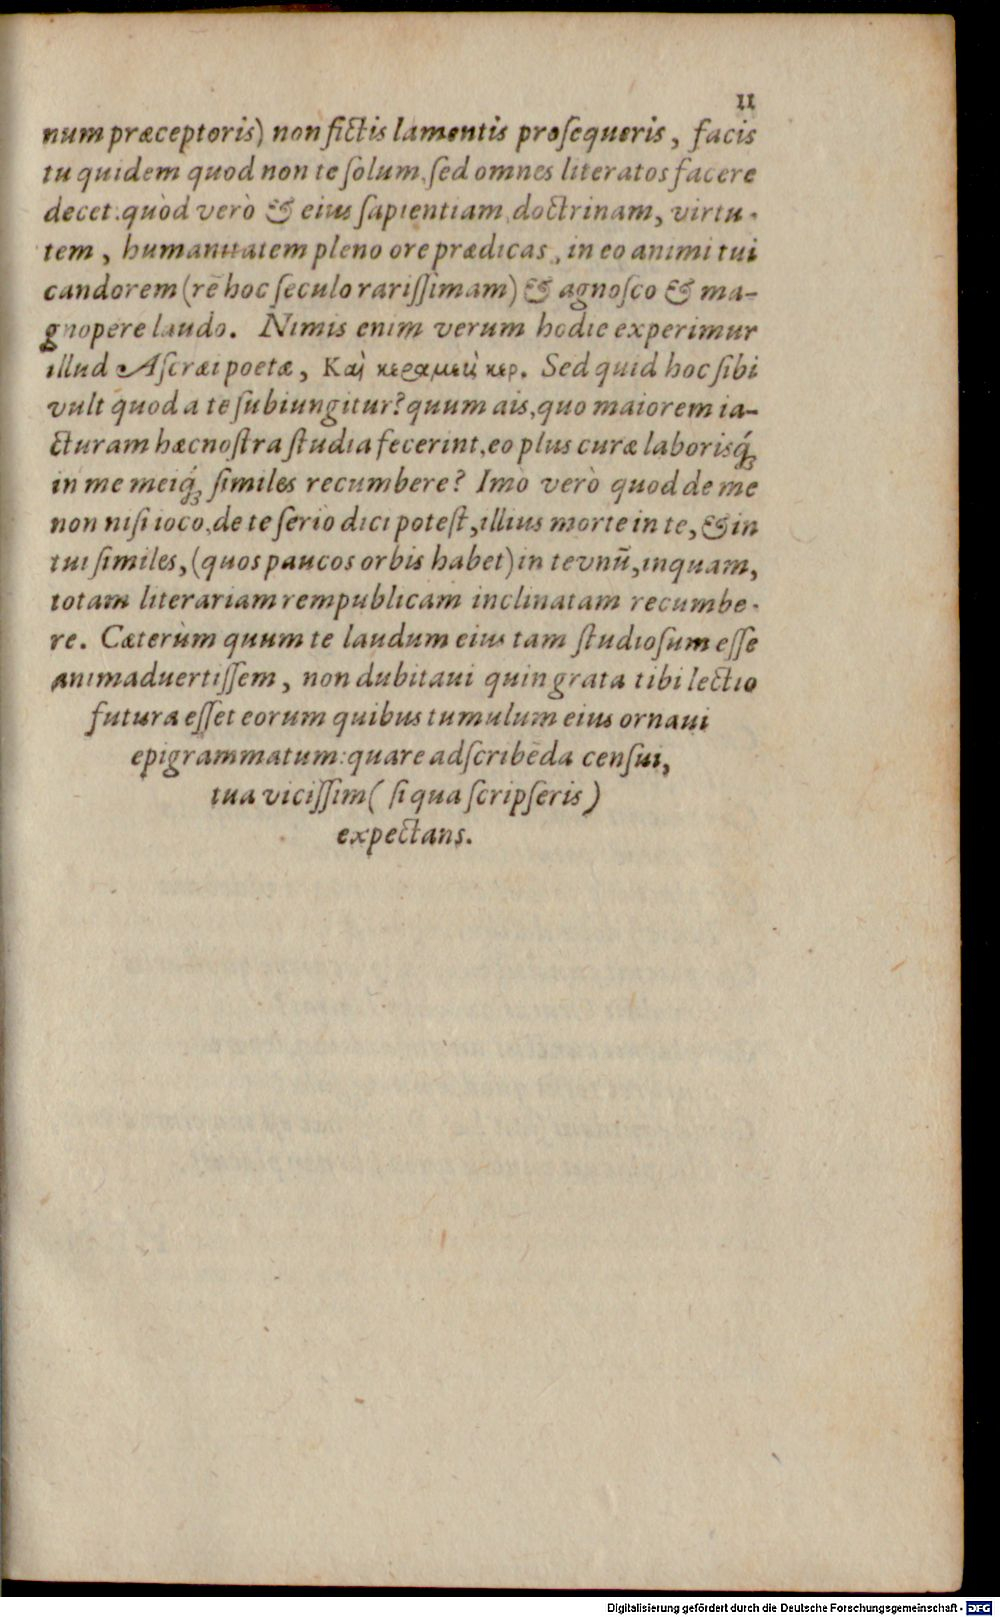 11
num præceptoris) non fictis lamentis proſequeris, facis
tu quidem quod non te ſolum, ſed omnes literatos facere
decet: quòd verò & eius ſapientiam, doctrinam, virtu-
tem, humanitatem pleno ore prædicas, in eo animi tui
candorem (rē hoc ſeculo rariſſimam) & agnoſco & ma-
gnopere laudo. Nimis enim verum hodie experimur
illud Aſcræi poetæ, Καὶ κεραμεὺς κερ. Sed quid hoc ſibi
vult quod a te ſubiungitur? quum ais, quo maiorem ia-
cturam hæc noſtra ſtudia fecerint, eo plus curæ laborisq́;
in me meiq́; ſimiles recumbere? Imo verò quod de me
non niſi ioco, de te ſerio dici poteſt, illius morte in te, & in
tui ſimiles, (quos paucos orbis habet) in te vnū, inquam,
totam literariam rempublicam inclinatam recumbe-
re. Cæterùm quum te laudum eius tam ſtudioſum eſſe
animaduertiſſem, non dubitaui quin grata tibi lectio
futura eſſet eorum quibus tumulum eius ornaui
epigrammatum: quare adſcribēda cenſui,
tua viciſſim (ſi qua ſcripſeris)
expectans.
Digitalisierung gefördert durch die Deutsche Forschungsgemeinschaft - DFG